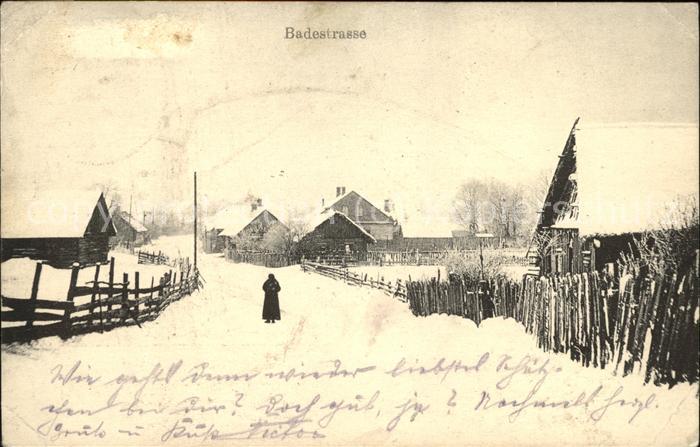 Badestrasse
Wie geht's denn wieder liebstel Schätz-
chen bei dir? Doch gut, ja? Nochmals herzl.
Gruß u Kuß Victor